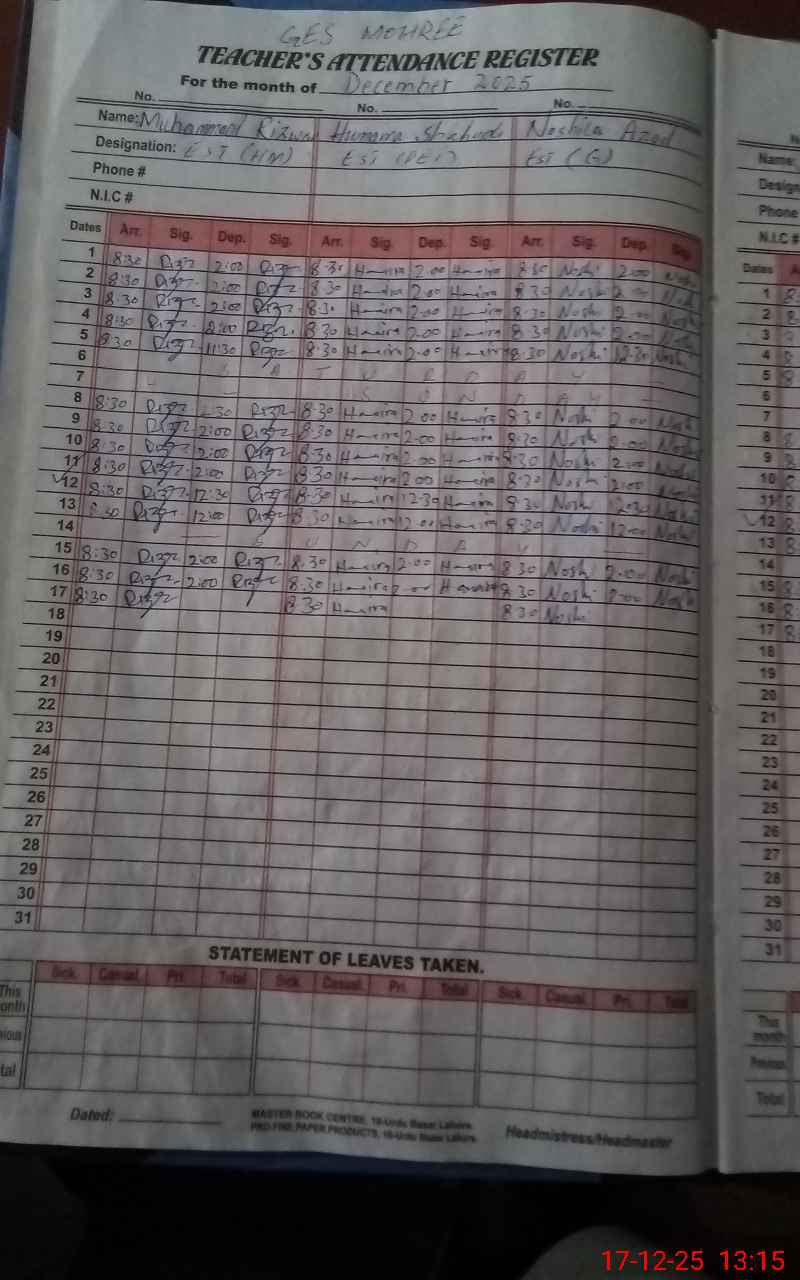 GES MOHREE
TEACHER'S ATTENDANCE REGISTER
For the month of December 2025
No. No. No.
Name: Muhammad Rizwan Humaira Shaheda Noshila Azad
Designation: EST (HM) EST (PET) EST (G)
Phone #
N.I.C #
Dates Arr. Sig. Dep. Sig. Arr. Sig. Dep. Sig. Arr. Sig. Dep. Sig.
1 8:30 Rizg 2:00 Rizg 8:30 Humaira 2:00 Humaira 8:30 Noshi 2:00 Noshi
2 8:30 Rizg 2:00 Rizg 8:30 Humaira 2:00 Humaira 8:30 Noshi 2:00 Noshi
3 8:30 Rizg 2:00 Rizg 8:30 Humaira 2:00 Humaira 8:30 Noshi 2:00 Noshi
4 8:30 Rizg 2:00 Rizg 8:30 Humaira 2:00 Humaira 8:30 Noshi 2:00 Noshi
5 8:30 Rizg 11:30 Rizg 8:30 Humaira 2:00 Humaira 8:30 Noshi 12:30 Noshi
6 S A T U R D A Y
7 S U N D A Y
8 8:30 Rizg Rizg 8:30 Humaira 2:00 Humaira 8:30 Noshi 2:00 Noshi
9 8:30 Rizg 2:00 Rizg 8:30 Humaira 2:00 Humaira 8:30 Noshi 2:00 Noshi
10 8:30 Rizg 2:00 Rizg 8:30 Humaira 2:00 Humaira 8:30 Noshi 2:00 Noshi
11 8:30 Rizg 2:00 Rizg 8:30 Humaira 2:00 Humaira 8:30 Noshi 2:00 Noshi
12 8:30 Rizg 12:30 Rizg 8:30 Humaira 12:30 Humaira 8:30 Noshi 12:30 Noshi
13 8:30 Rizg 12:00 Rizg 8:30 Humaira 12:00 Humaira 8:30 Noshi 12:00 Noshi
14 S U N D A Y
15 8:30 Rizg 2:00 Rizg 8:30 Humaira 2:00 Humaira 8:30 Noshi 2:00 Noshi
16 8:30 Rizg 2:00 Rizg 8:30 Humaira 2:00 Humaira 8:30 Noshi 2:00 Noshi
17 8:30 Rizg 8:30 Humaira 8:30 Noshi
18
19
20
21
22
23
24
25
26
27
28
29
30
31
STATEMENT OF LEAVES TAKEN.
Sick. Casual. Pri. Total Sick. Casual. Pri. Total Sick. Casual. Pri. Total
This month
ious
tal
Dated:
MASTER BOOK CENTRE, 10-Urdu Bazar Lahore.
PRO FINE PAPER PRODUCTS, 16-Urdu Bazar Lahore.
Headmistress/Headmaster
Name:
Design
Phone
N.I.C #
Dates A
1 8
2 8
3 8
4 8
5 8
6
7
8 8
9 8
10 8
11 8
12 8
13 8
14
15 8
16 8
17 8
18
19
20
21
22
23
24
25
26
27
28
29
30
31
This month
Previous
Total
17-12-25 13:15